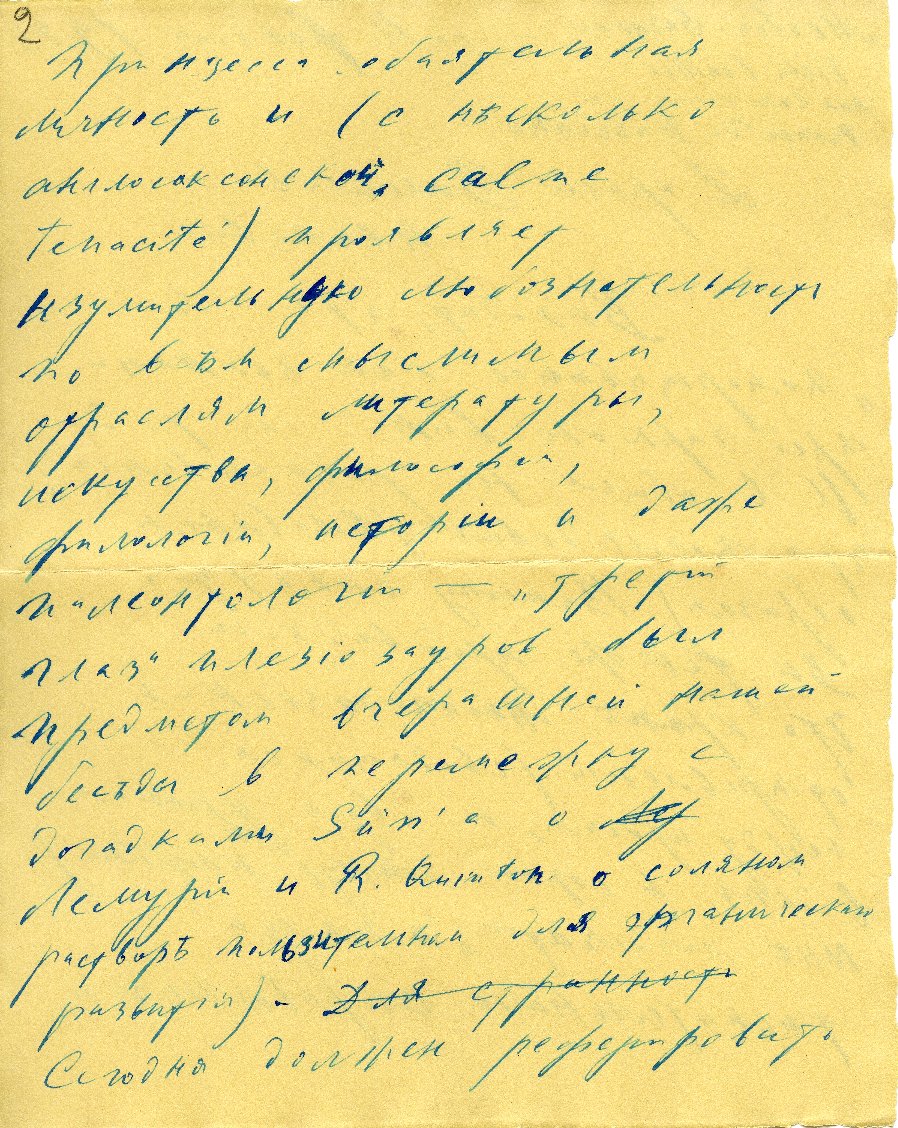 2
Принцесса обаятельная
личность и (с нѣсколько
англосаксонской, calme
tenacité) проявляет
изумительную любознательность
по всѣм мыслимым
отраслям литературы,
искусства, философіи,
филологіи, исторіи и даже
палеонтологіи — „третій
глаз“ плезіозауров был
предметом вчерашней нашей
бесѣды в перемежку с
догадками Süss'a о
Лемуріи и R. Quinton о соляном
растворѣ пользительном для органическаго
развитія). Для странность
Сегодня должен реферировать